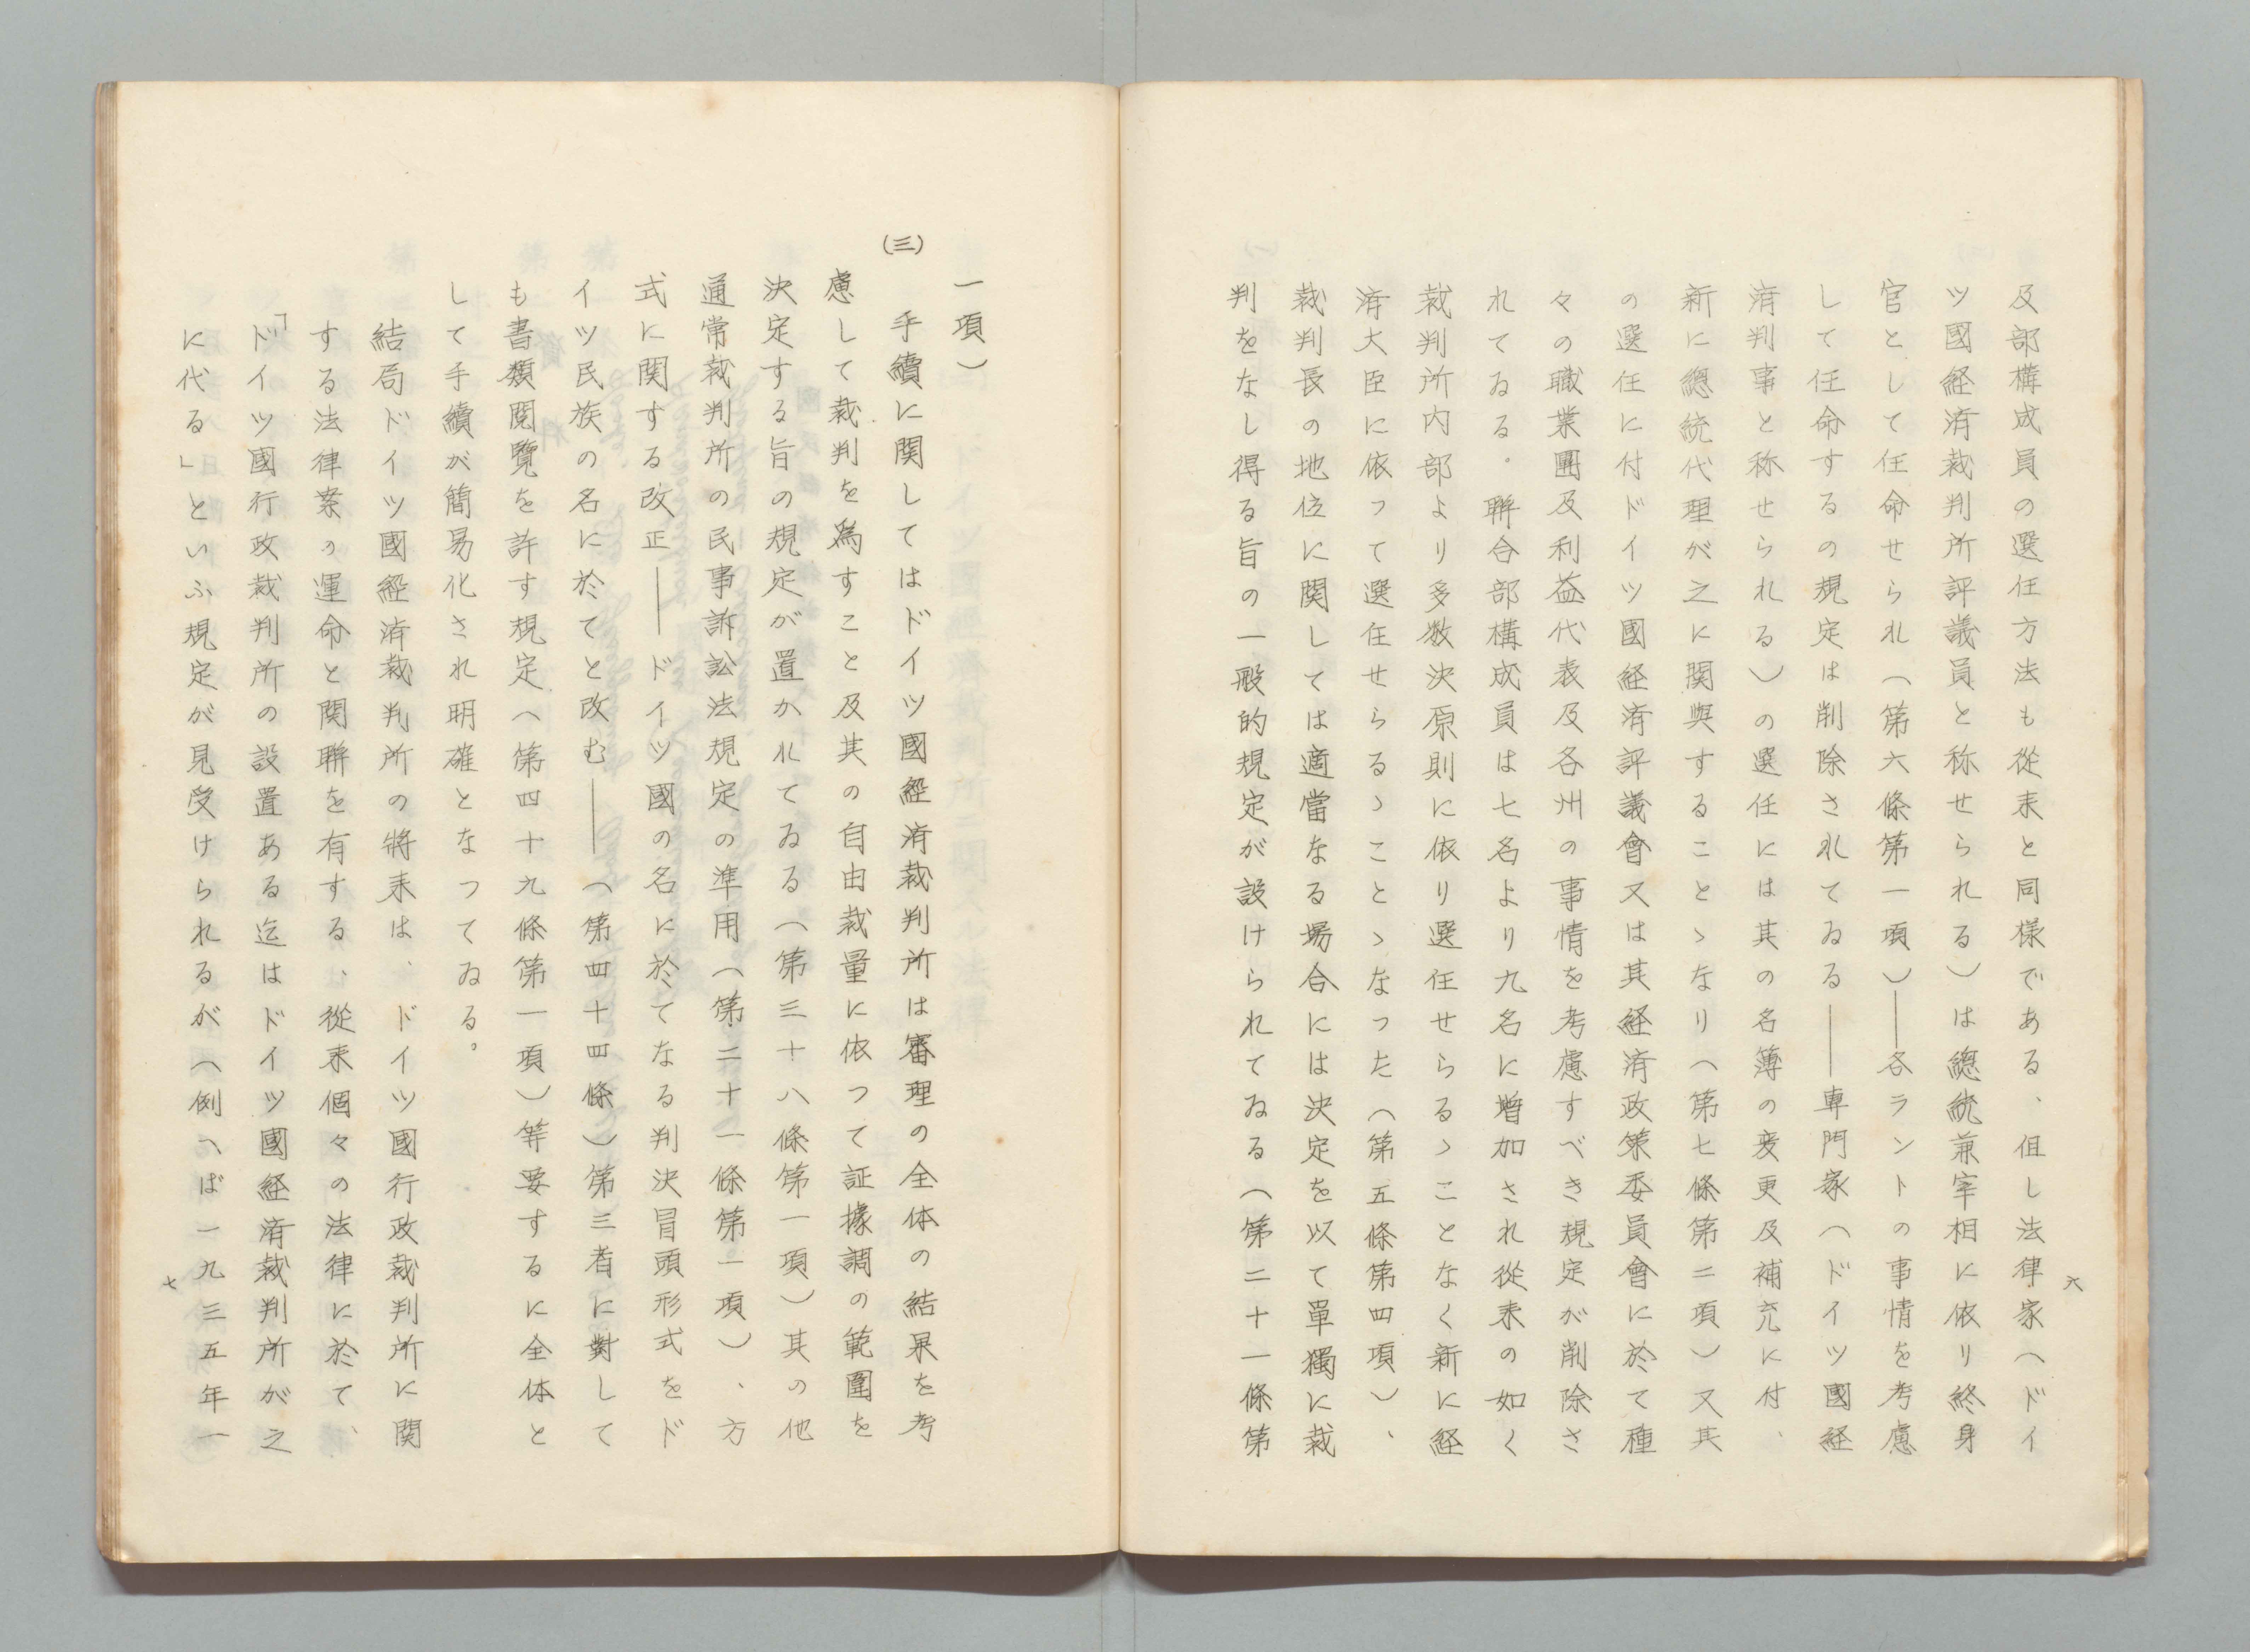 及部構成員の選任方法も從来と同様である、但し法律家（ドイ
ツ國経済裁判所評議員と称せられる）は總統兼宰相に依り終身
官として任命せられ（第六條第一項）――各ラントの事情を考慮
して任命するの規定は削除されてゐる――專門家（ドイツ國経
済判事と称せられる）の選任には其の名簿の変更及補充に付、
新に總統代理が之に関與することゝなり（第七條第二項）又其
の選任に付ドイツ國経済評議會又は其経済政策委員會に於て種
々の職業團及利益代表及各州の事情を考慮すべき規定が削除さ
れてゐる。聯合部構成員は七名より九名に増加され從来の如く
裁判所内部より多数決原則に依り選任せらるゝことなく新に経
済大臣に依って選任せらるゝことゝなった（第五條第四項）、
裁判長の地位に関しては適當なる場合には決定を以て單獨に裁
判をなし得る旨の一般的規定が設けられてゐる（第二十一條第
六
一項）
（三）手續に関してはドイツ國経済裁判所は審理の全体の結果を考
慮して裁判を爲すこと及其の自由裁量に依つて証據調の範圍を
決定する旨の規定が置かれてゐる（第三十八條第一項）其の他
通常裁判所の民事訴訟法規定の準用（第二十一條第一項）、方
式に関する改正――ドイツ國の名に於てなる判決冒頭形式をド
イツ民族の名に於てと改む――（第四十四條）第三者に對して
も書類閲覽を許す規定（第四十九條第一項）等要するに全体と
して手續が簡易化され明確となつてゐる。
結局ドイツ國経済裁判所の將来は、ドイツ國行政裁判所に関
する法律案の運命と関聯を有する、從来個々の法律に於て、
「ドイツ國行政裁判所の設置ある迄はドイツ國経済裁判所が之
に代る」といふ規定が見受けられるが（例へば一九三五年一
七